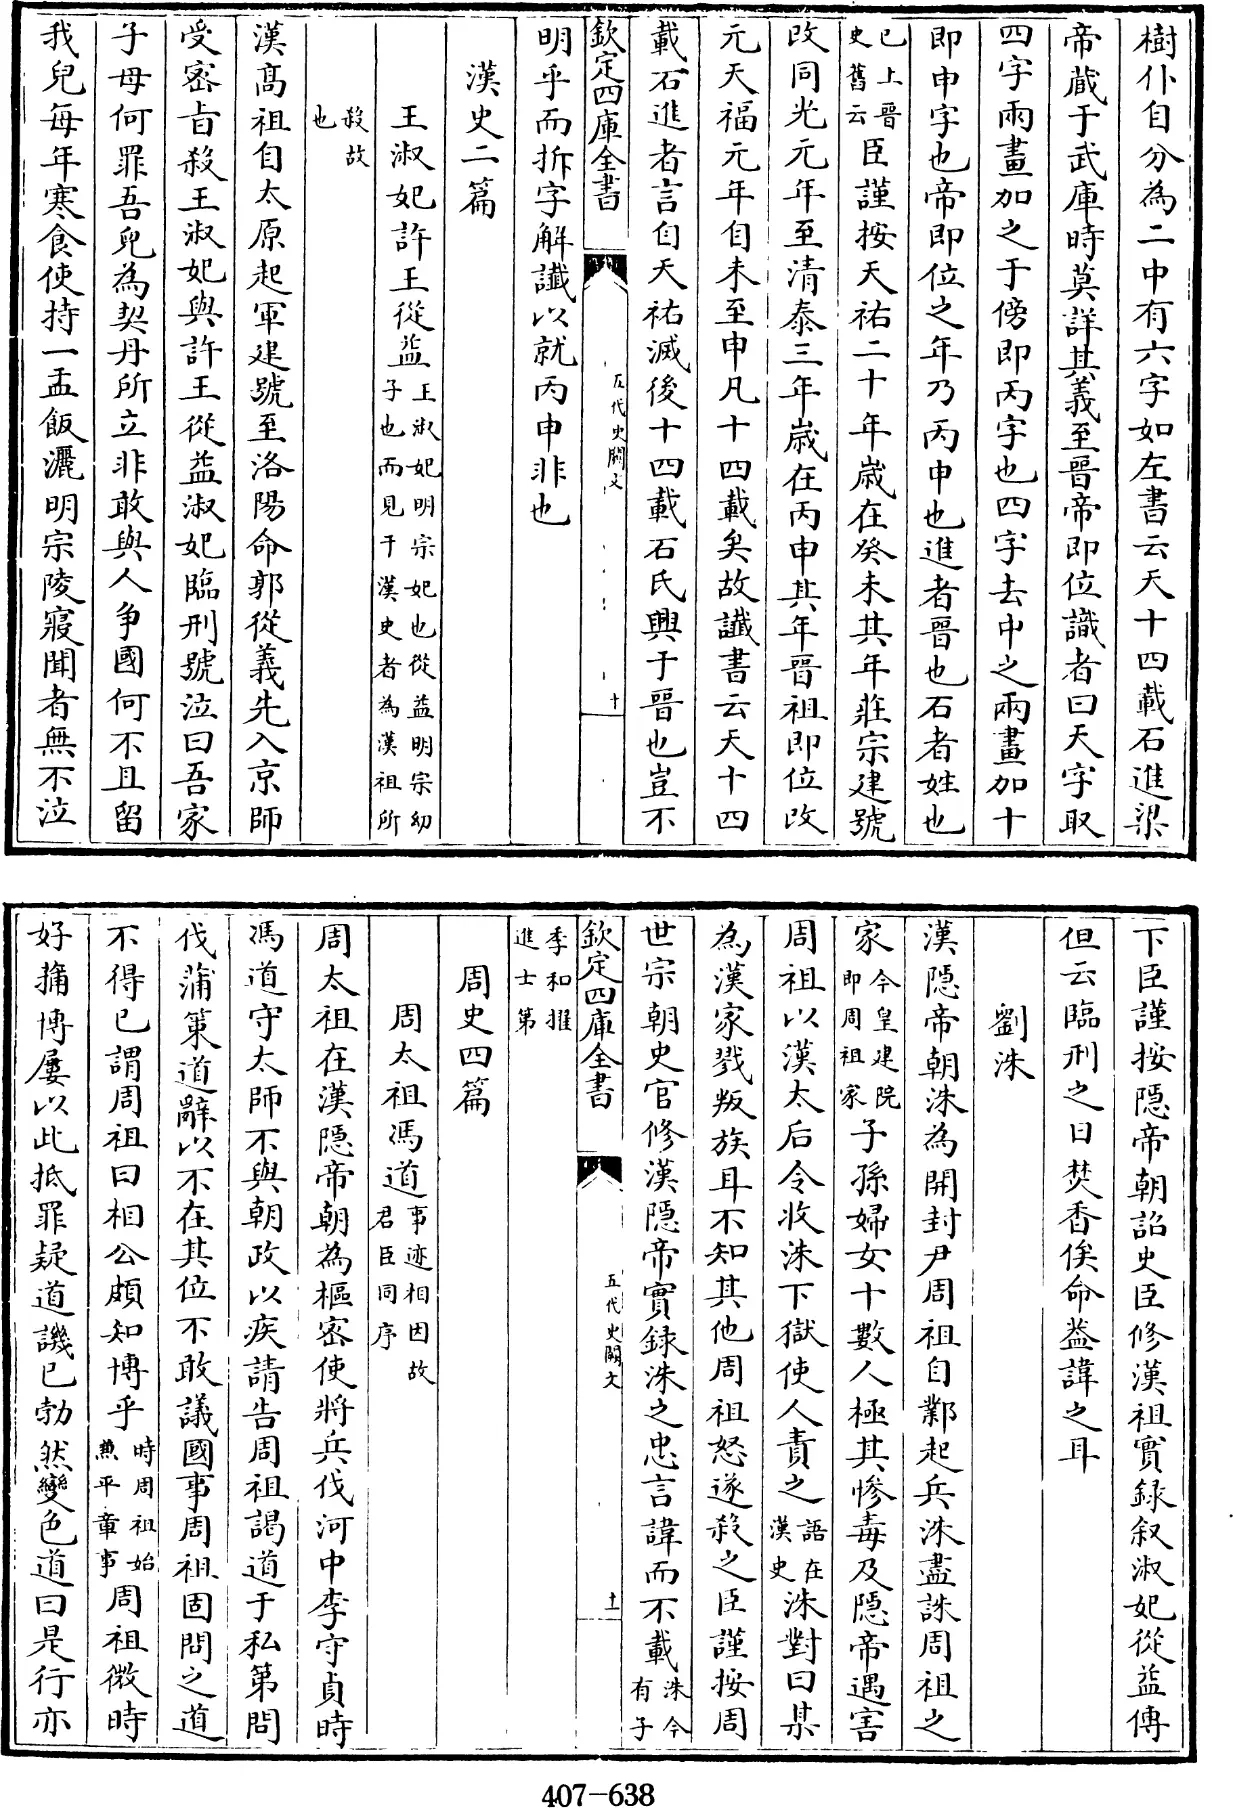 樹仆自分為二中有六字如左書云天十四載石進梁
帝蔵于武庫時莫詳其義至晉帝即位識者曰天字取
四字兩畫加之于傍即丙字也四字去中之兩畫加十
即申字也帝即位之年乃丙申也進者晉也石者姓也
已上晉史舊云臣謹按天祐二十年歲在癸未其年莊宗建號
改同光元年至清泰三年歲在丙申其年晉祖即位改
元天福元年自未至申凡十四載矣故讖書云天十四
載石進者言自天祐滅後十四載石氏興于晉也豈不
欽定四庫全書
五代史闕文
十
明乎而拆字解讖以就丙申非也
漢史二篇
王淑妃許王從益王淑妃明宗妃也從益明宗幼子也而見于漢史者為漢祖所
殺故也
漢高祖自太原起軍建號至洛陽命郭從義先入京師
受密旨殺王淑妃與許王從益淑妃臨刑號泣曰吾家
子母何罪吾兒為契丹所立非敢與人争國何不且留
我兒每年寒食使持一盂飯灑明宗陵寢聞者無不泣
下臣謹按隠帝朝詔史臣修漢祖實録叙淑妃從益傳
但云臨刑之日焚香俟命葢諱之耳
劉洙
漢隠帝朝洙為開封尹周祖自鄴起兵洙盡誅周祖之
家今皇建院即周祖家子孫婦女十數人極其慘毒及隠帝遇害
周祖以漢太后令收洙下獄使人責之語在漢史洙對曰某
為漢家戮叛族耳不知其他周祖怒遂殺之臣謹按周
世宗朝史官修漢隠帝實録洙之忠言諱而不載洙今有子
欽定四庫全書
五代史闕文
十一
季和擢進士第
周史四篇
周太祖馮道事迹相因故君臣同序
周太祖在漢隠帝朝為樞密使將兵伐河中李守貞時
馮道守太師不與朝政以疾請告周祖謁道于私第問
伐蒲策道辭以不在其位不敢議國事周祖固問之道
不得已謂周祖曰相公頗知博乎時周祖始兼平章事周祖微時
好摴博屢以此抵罪疑道譏已勃然變色道曰是行亦
407-638